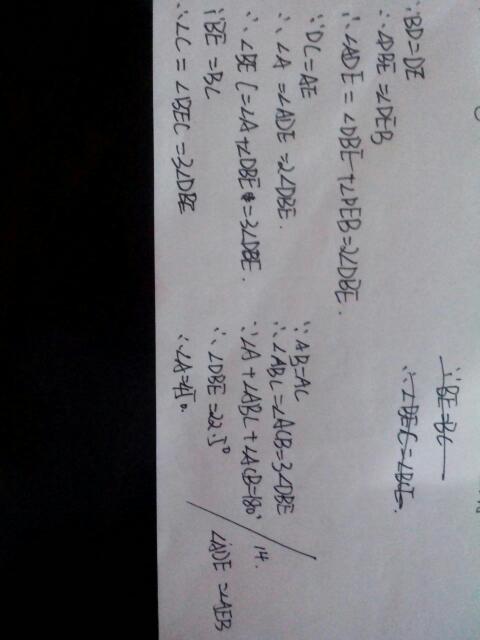 ∵BD=DE
∴∠DBE=∠DEB
∴∠ADE=∠DBE+∠DEB=2∠DBE.
∵DC=AE
∴∠A=∠ADE=2∠DBE.
∴∠BEC=∠A+∠DBE=3∠DBE.
∵BE=BC
∴∠C=∠BEC=3∠DBE
∵BE=BC
∴∠BEC=∠BCE.
∵AB=AC
∴∠ABC=∠ACB=3∠DBE
∴∠A+∠ABC+∠ACB=180°
∴∠DBE=22.5°
∴∠A=45°.
14.
∠ADE=∠AEB